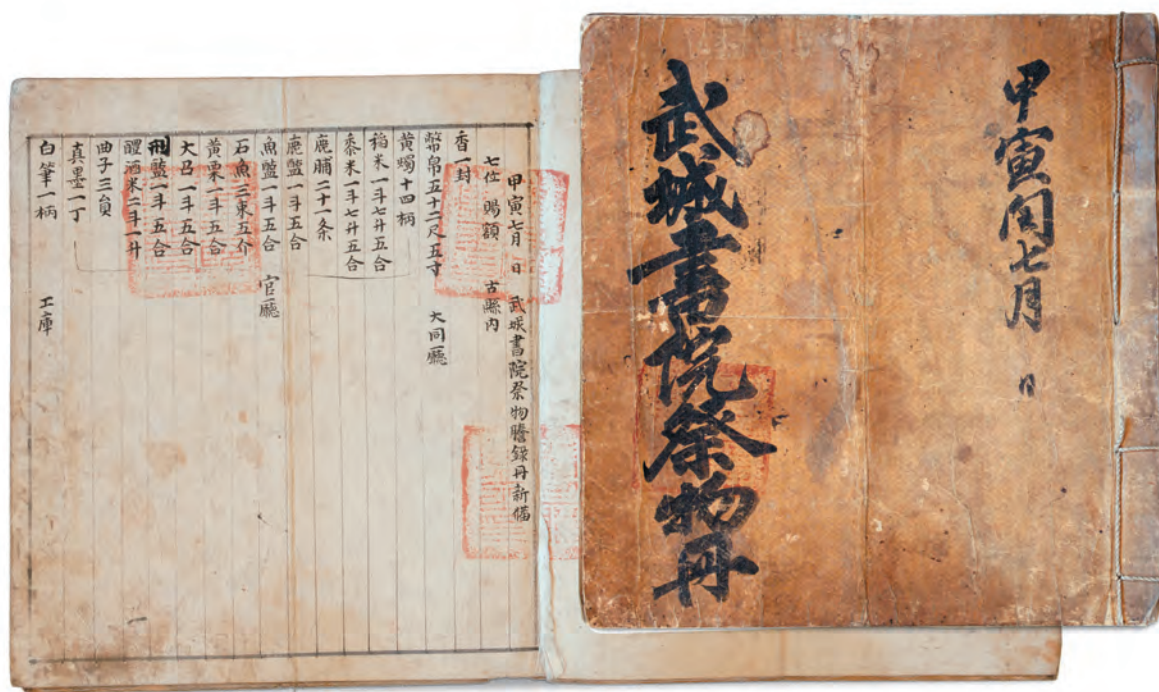 甲寅閏七月 日
武城書院祭物冊
甲寅七月 日 武城書院祭物謄錄冊新備
七位 賜額 古縣內
香一封
幣帛五十二尺五寸 大同廳
黃燭十四柄
稻米一斗七升五合
黍米一斗七升五合
鹿脯二十一条
鹿醢一斗五合
魚醢一斗五合 官廳
石魚三束五介
黃栗一斗五合
大召一斗五合
刑鹽一斗五合
醴酒米二斗一升
曲子三負
真墨一丁
白筆一柄 工庫